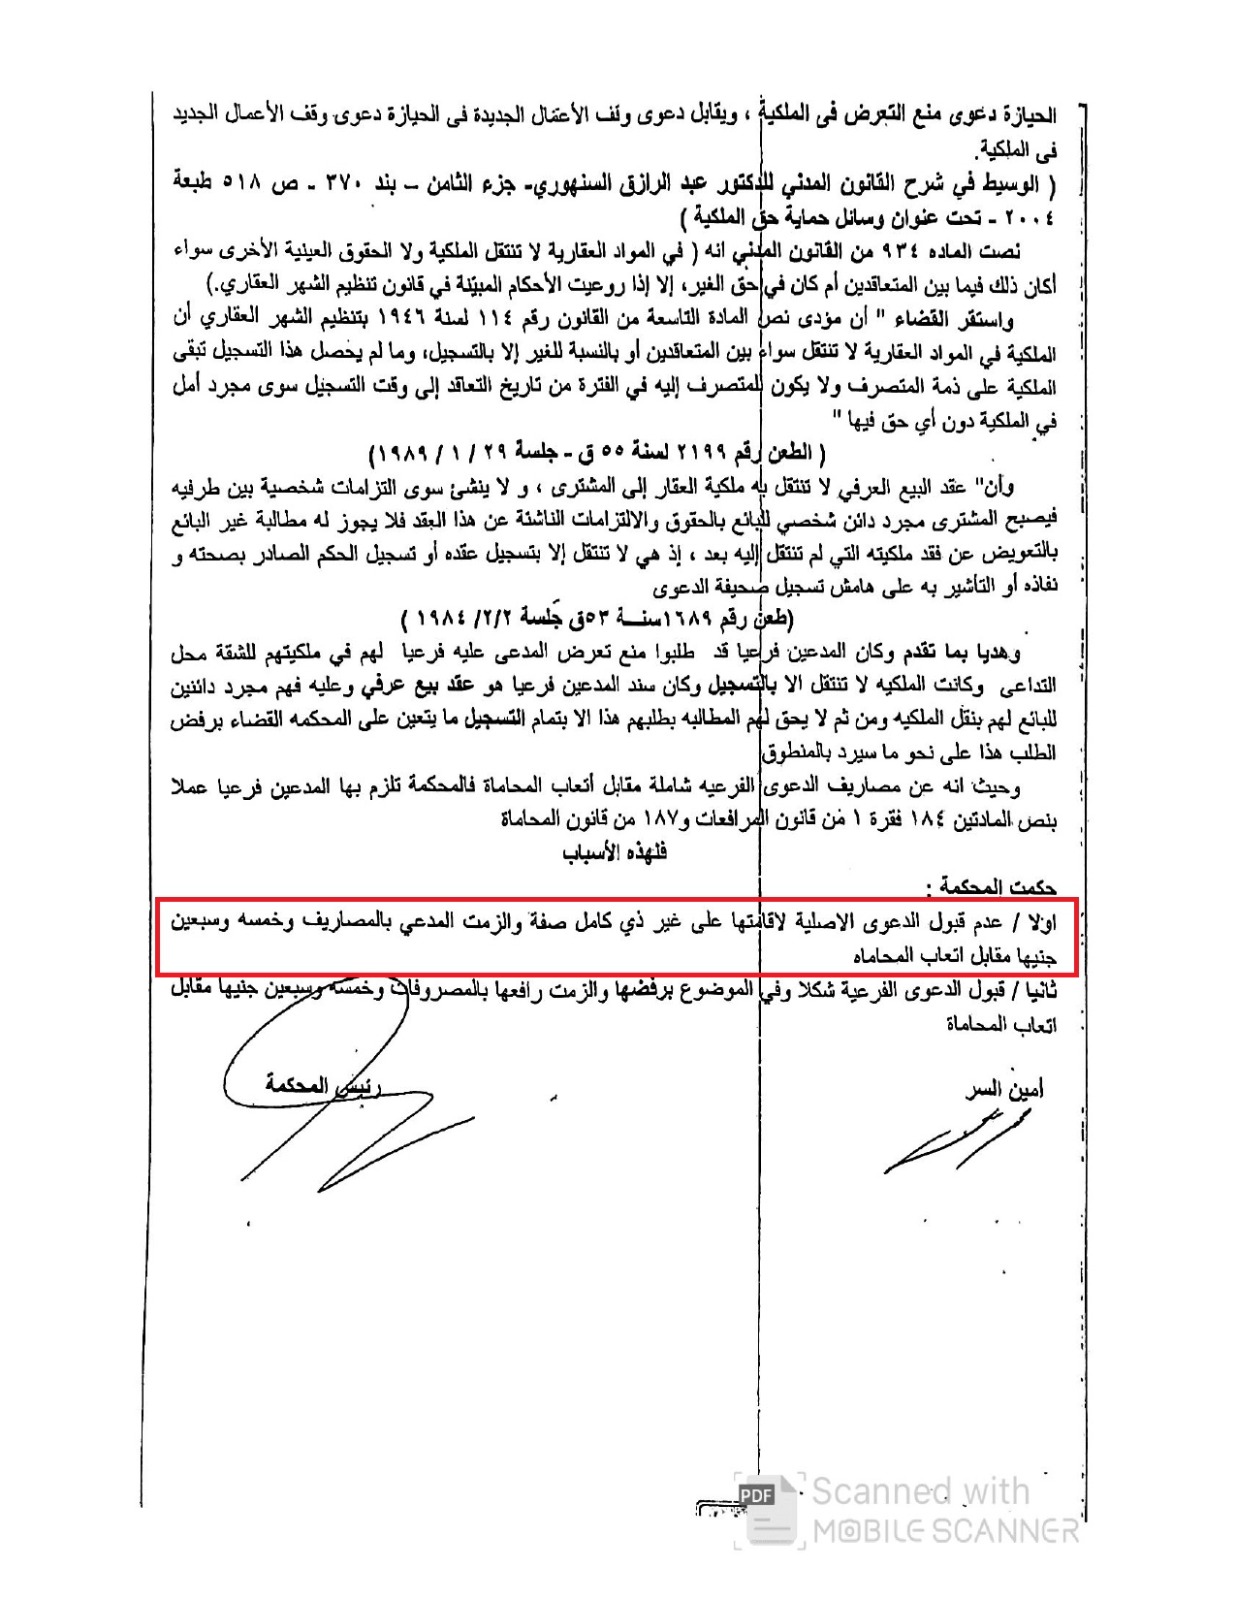 الحيازة دعوى منع التعرض فى الملكية ، ويقابل دعوى وقف الأعمال الجديدة فى الحيازة دعوى وقف الأعمال الجديد
فى الملكية.
( الوسيط في شرح القانون المدني للدكتور عبد الرازق السنهوري- جزء الثامن – بند ٣٧٠ - ص ٥١٨ طبعة
٢٠٠٤ - تحت عنوان وسائل حماية حق الملكية )
نصت الماده ٩٣٤ من القانون المدني انه ( في المواد العقارية لا تنتقل الملكية ولا الحقوق العينية الأخرى سواء
أكان ذلك فيما بين المتعاقدين أم كان في حق الغير، إلا إذا روعيت الأحكام المبيّنة في قانون تنظيم الشهر العقاري.)
واستقر القضاء " أن مؤدى نص المادة التاسعة من القانون رقم ١١٤ لسنة ١٩٤٦ بتنظيم الشهر العقاري أن
الملكية في المواد العقارية لا تنتقل سواء بين المتعاقدين أو بالنسبة للغير إلا بالتسجيل، وما لم يحصل هذا التسجيل تبقى
الملكية على ذمة المتصرف ولا يكون للمتصرف إليه في الفترة من تاريخ التعاقد إلى وقت التسجيل سوى مجرد أمل
في الملكية دون أي حق فيها "
( الطعن رقم ٢١٩٩ لسنة ٥٥ ق - جلسة ٢٩ / ١ / ١٩٨٩)
وأن" عقد البيع العرفي لا تنتقل به ملكية العقار إلى المشترى ، و لا ينشئ سوى التزامات شخصية بين طرفيه
فيصبح المشترى مجرد دائن شخصي للبائع بالحقوق والالتزامات الناشئة عن هذا العقد فلا يجوز له مطالبة غير البائع
بالتعويض عن فقد ملكيته التي لم تنتقل إليه بعد ، إذ هي لا تنتقل إلا بتسجيل عقده أو تسجيل الحكم الصادر بصحته و
نفاذه أو التأشير به على هامش تسجيل صحيفة الدعوى
(طعن رقم ١٦٨٩سنة ٥٣ق جلسة ١٩٨٤/٢/٢ )
وهديا بما تقدم وكان المدعين فرعيا قد طلبوا منع تعرض المدعى عليه فرعيا لهم في ملكيتهم للشقة محل
التداعى وكانت الملكيه لا تنتقل الا بالتسجيل وكان سند المدعين فرعيا هو عقد بيع عرفي وعليه فهم مجرد دائنين
للبائع لهم بنقل الملكيه ومن ثم لا يحق لهم المطالبه بطلبهم هذا الا بتمام التسجيل ما يتعين على المحكمه القضاء برفض
الطلب هذا على نحو ما سيرد بالمنطوق
وحيث انه عن مصاريف الدعوى الفرعيه شاملة مقابل أتعاب المحاماة فالمحكمة تلزم بها المدعين فرعيا عملا
بنص المادتين ١٨٤ فقرة ١ من قانون المرافعات و١٨٧ من قانون المحاماة
فلهذه الأسباب
حكمت المحكمة :
اولا / عدم قبول الدعوى الاصلية لاقامتها على غير ذي كامل صفة والزمت المدعي بالمصاريف وخمسه وسبعين
جنيها مقابل اتعاب المحاماه
ثانيا / قبول الدعوى الفرعية شكلا وفي الموضوع برفضها والزمت رافعها بالمصروفات وخمسه وسبعين جنيها مقابل
اتعاب المحاماة
أمين السر
رئيس المحكمة
PDF
Scanned with
MOBILE SCANNER